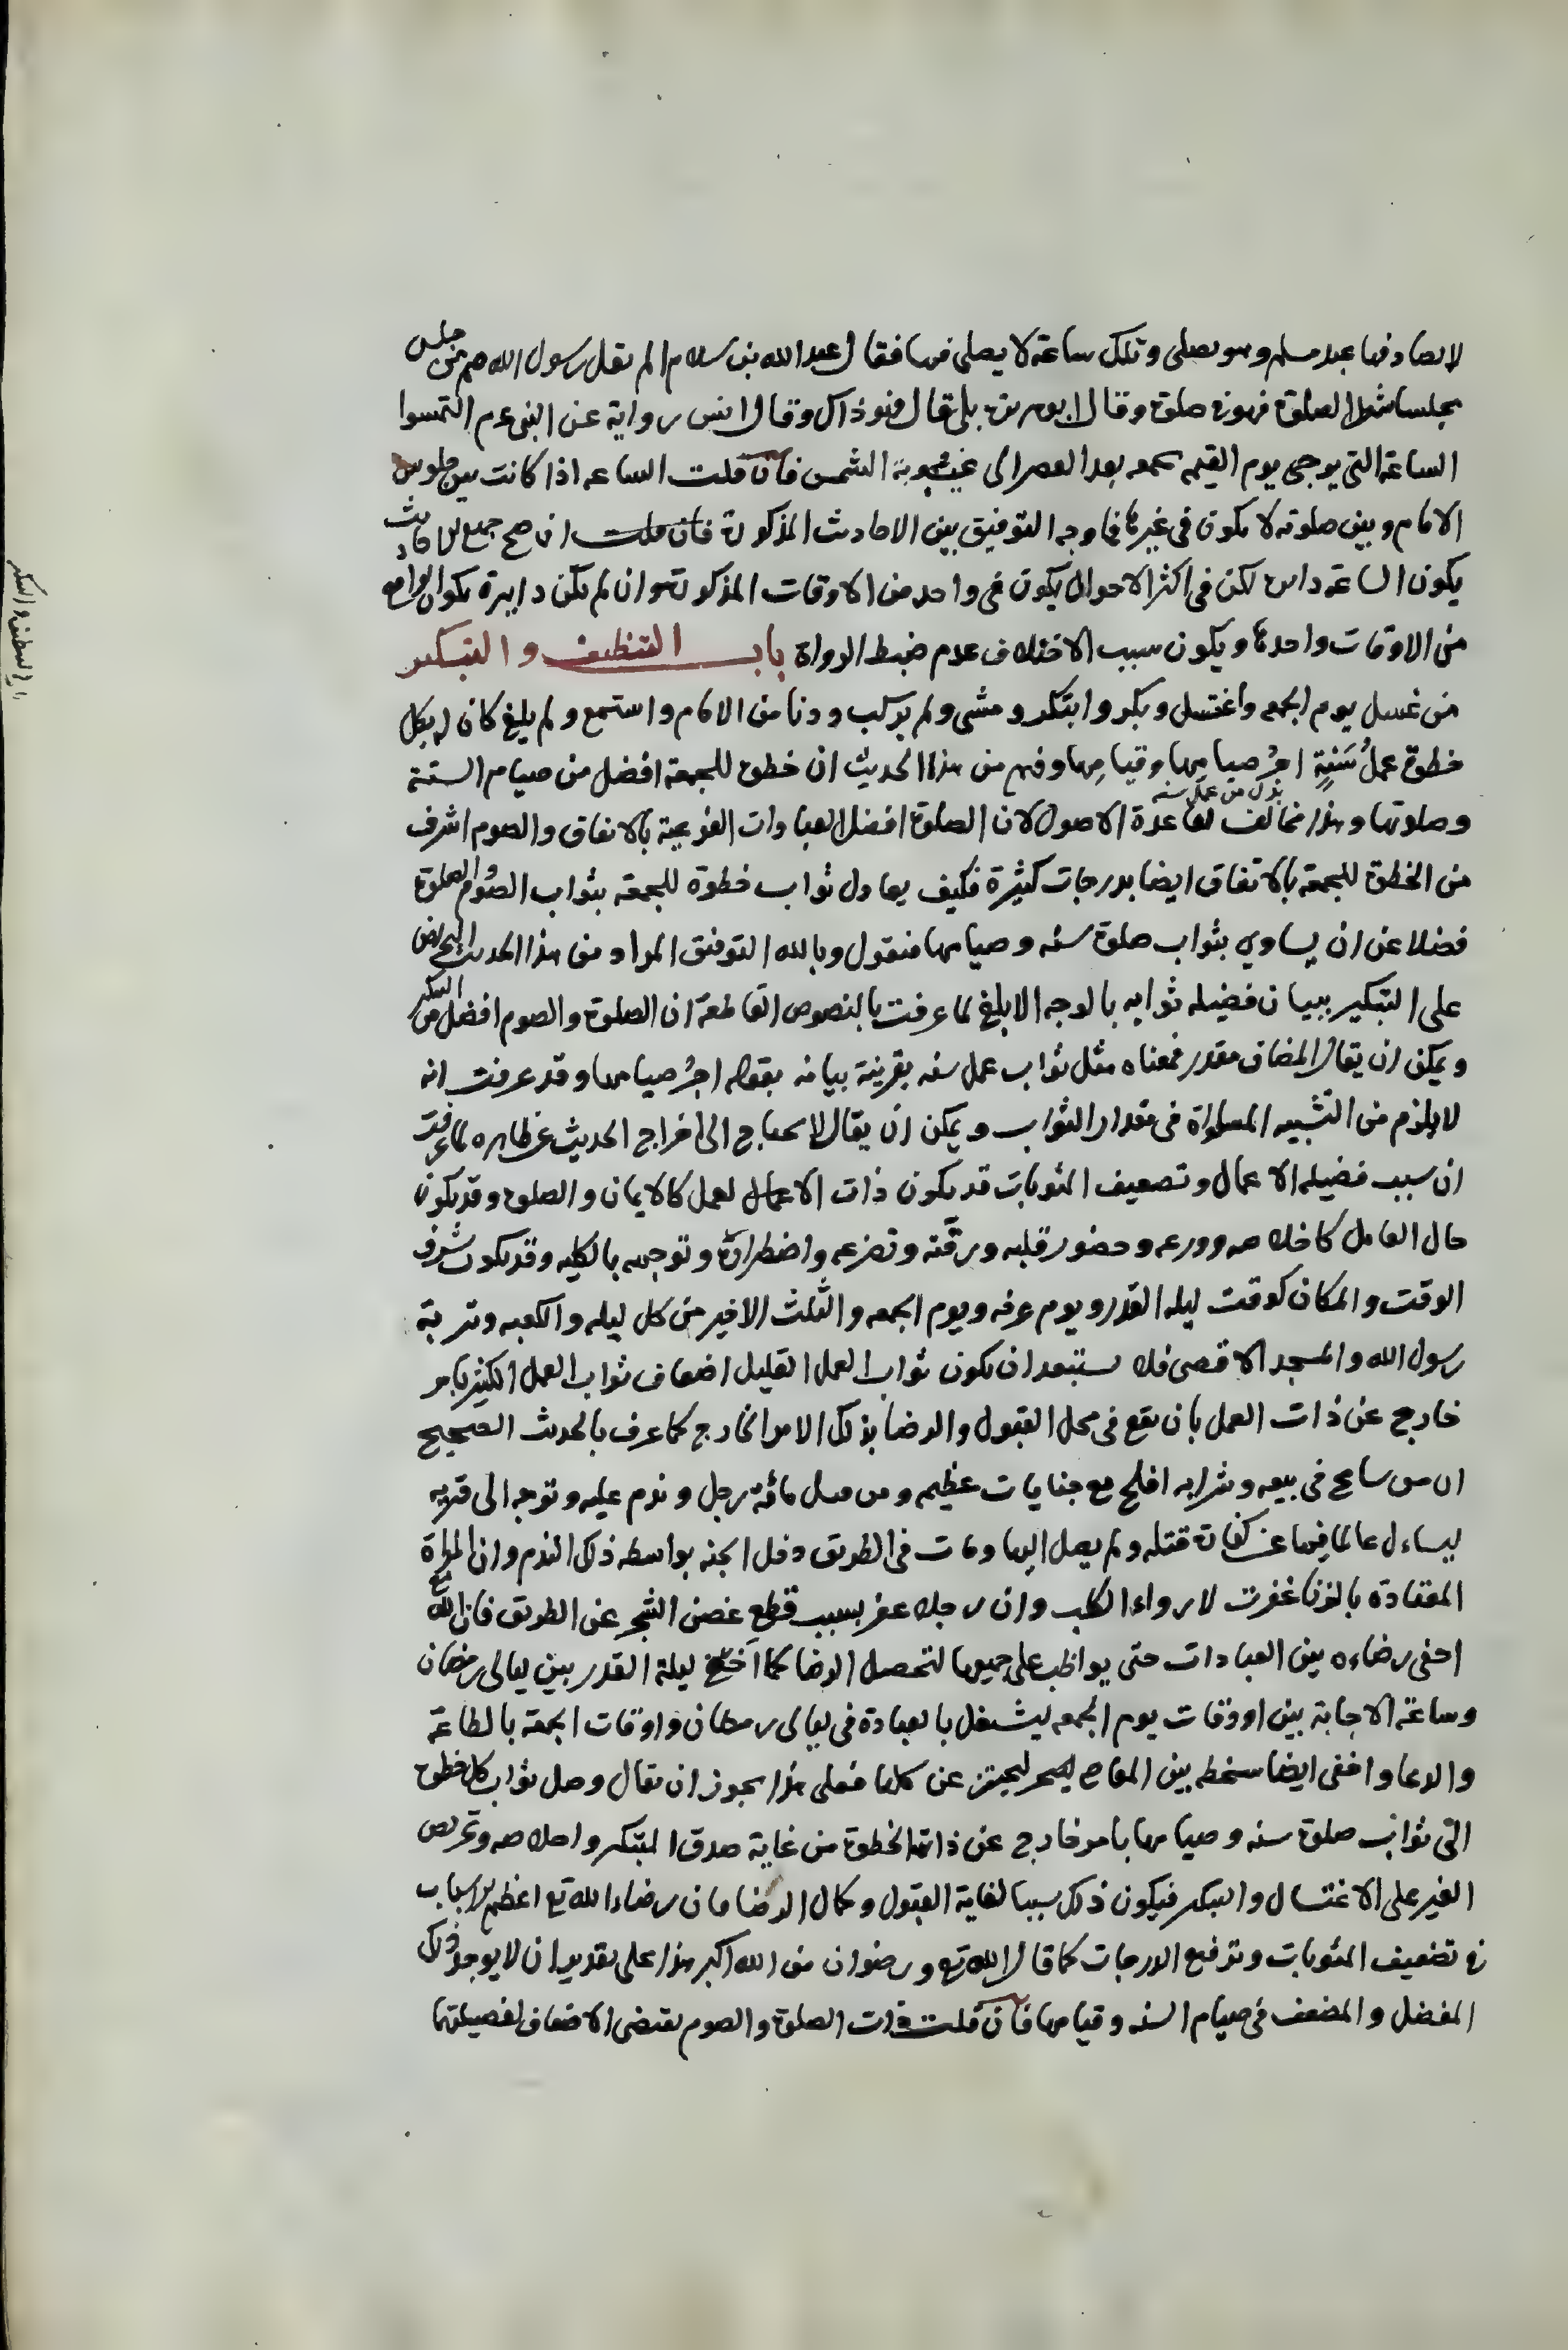 لا يصادفها عبد مسلم وهو يصلى وتلك ساعة لا يصلى فيها فقال عبد الله بن سلام الم يقل رسول الله صم من جلس
مجلسا ينتظر الصلوة فهو فى صلوة وقال ابو هريرة بلى قال فهو ذاك وقال انس رواية عن النبى عم التمسوا
الساعة التى يوجى يوم القيمه سمعه بعد العصر الى غيبوبة الشمس فان قلت الساعه اذا كانت بين جلوس
الامام وبين صلوته لا يكون فى غيرها فما وجه التوفيق بين الاحاديث المذكورة فان قلت ان صح جميع الاحاديث
يكون الساعة دايرة لكن فى اكثر الاحوال يكون فى واحد من الاوقات المذكورة وان لم يكن دايرة يكون الواقع
من الاوقات واحدها ويكون سبب الاختلاف عدم ضبط الرواة باب التنظيف والتبكير
من غسل يوم الجمعه واغتسل وبكر وابتكر ومشى ولم يركب ودنا من الامام واستمع ولم يلغ كان له بكل
خطوة عملُ سَنَةٍ اجرُ صيامِها وقيامِها وفهم من هذا الحديث ان خطوة للجمعة افضل من صيام السنة
بدل من عمل سنه
وصلوتها وهذا مخالف لقاعدة الاصول لان الصلوة افضل العبادات الفرعية بالاتفاق والصوم اشرف
من الخطوة للجمعة بالاتفاق ايضا بدرجات كثيرة فكيف يعادل ثواب خطوة للجمعة بثواب الصوم والصلوة
فضلا عن ان يساوي بثواب صلوة سنه وصيامها فنقول وبالله التوفيق المراد من هذا الحديث التحريض
على التبكير ببيان فضيله ثوابه بالوجه الابلغ لما عرفت بالنصوص القاطعة ان الصلوة والصوم افضل من التبكير
ويمكن ان يقال المضاف مقدر فمعناه مثل ثواب عمل سنه بقرينة بيانه بقوله اجرُ صيامها وقد عرفت انه
لا يلزم من التشبيه المساواة فى مقدار الثواب ويمكن ان يقال لا يحتاج الى اخراج الحديث عن ظاهره لما عرفت
ان سبب فضيله الاعمال وتضعيف المثوبات قد يكون ذات الاعمال لعمل كالايمان والصلوة وقد يكون
حال العامل كاخلاصه وورعه وحضور قلبه ورقّته وتضرعه واضطراره وتوجهه بالكليه وقد يكون شرف
الوقت والمكان كوقت ليله القدر ويوم عرفه ويوم الجمعه والثلث الاخير من كل ليله والكعبه وتربة
رسول الله والمسجد الاقصى فلا يستبعد ان يكون ثواب العمل القليل اضعاف ثواب العمل الكثير بامر
خارج عن ذات العمل بان يقع فى محل القبول والرضا بذلك الامر الخارج كما عرف بالحديث الصحيح
ان من سامح فى بيعه وشرابه افلح مع جنايات عظيمه ومن قتل مائة رجل وندم عليه وتوجه الى قريه
ليساءل عالما فيها عن كفارة قتله ولم يصل اليها ومات فى الطريق دخل الجنه بواسطه ذلك الندم وان المراة
المعتادة بالزنا غفرت لارواء الكلب وان رجلا غفر بسبب قطع غصن الشجر عن الطريق فان الله تع
اخفى رضاءه بين العبادات حتى يواظب على جميعها لتحصيل الرضا كما اخفى ليلة القدر بين ليالى رمضان
وساعة الاجابة بين اوقات يوم الجمعه ليشتغل بالعبادة فى ليالى رمضان واوقات الجمعة بالطاعة
والدعا واخفى ايضا سخطه بين المعاصى ليجتنب عن كلها فعلى هذا يجوز ان يقال وصل ثواب كل خطوة
الى ثواب صلوة سنه وصيامها بامر خارج عن ذات الخطوة من غاية صدق المبتكر واخلاصه وتحريص
الغير على الاغتسال والتبكير فيكون ذلك سببا لغاية القبول وكمال الرضا فان رضاء الله تع اعظم الاسباب
فى تضعيف المثوبات وترفيع الدرجات كما قال الله تع ورضوان من الله اكبر هذا على تقدير ان لا يوجد ذلك
المفضل والمضعف فى صيام السنه وقيامها فان قلت ذات الصلوة والصوم يقتضى الاضعاف لفضيلتها